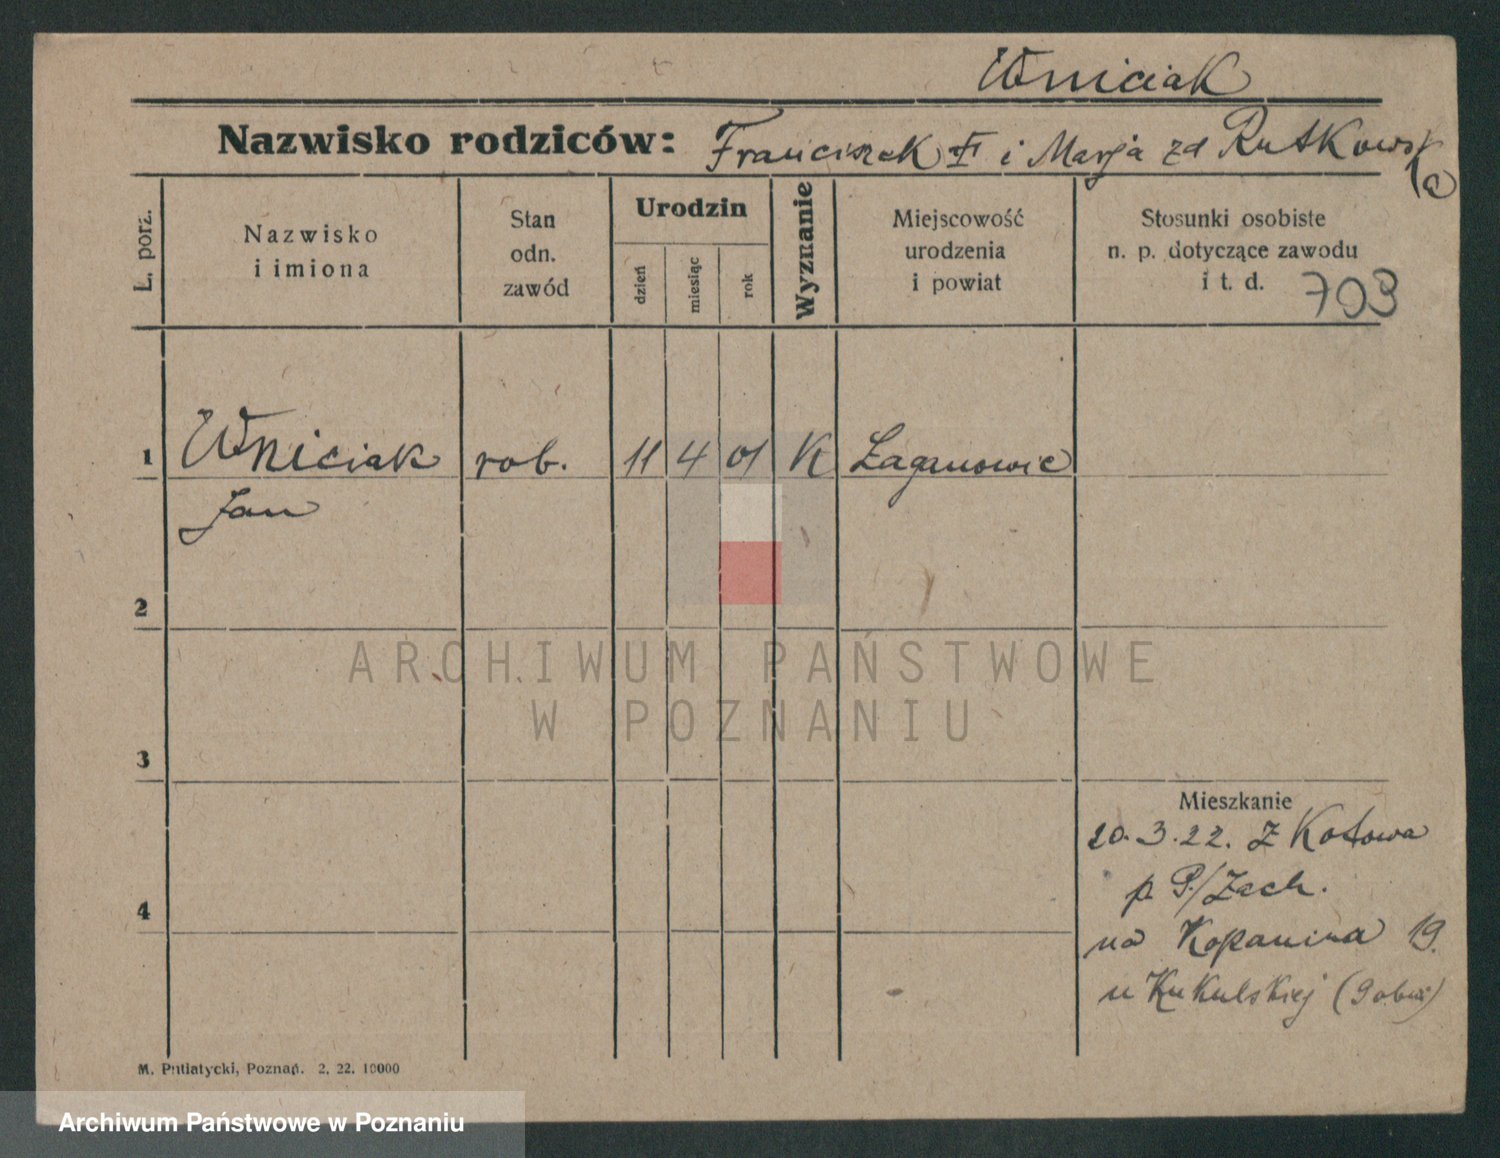 Wniciak
Nazwisko rodziców: Franciszek i Marja zd Rutkowska
L. porz.
Nazwisko
i imiona
Stan
odn.
zawód
Urodzin
dzień
miesiąc
rok
Wyznanie
Miejscowość
urodzenia
i powiat
Stosunki osobiste
n. p. dotyczące zawodu
i t. d.
703
1 Wniciak rob. 11 4 01 K Łaganowic
Jan
2
ARCHIWUM PAŃSTWOWE
W POZNANIU
3
Mieszkanie
20.3.22. z Kotowa
p P./Zach.
4
na Kopanina 19.
u Kukulskiej
M. Putiatycki, Poznań. 2. 22. 10000
Archiwum Państwowe w Poznaniu